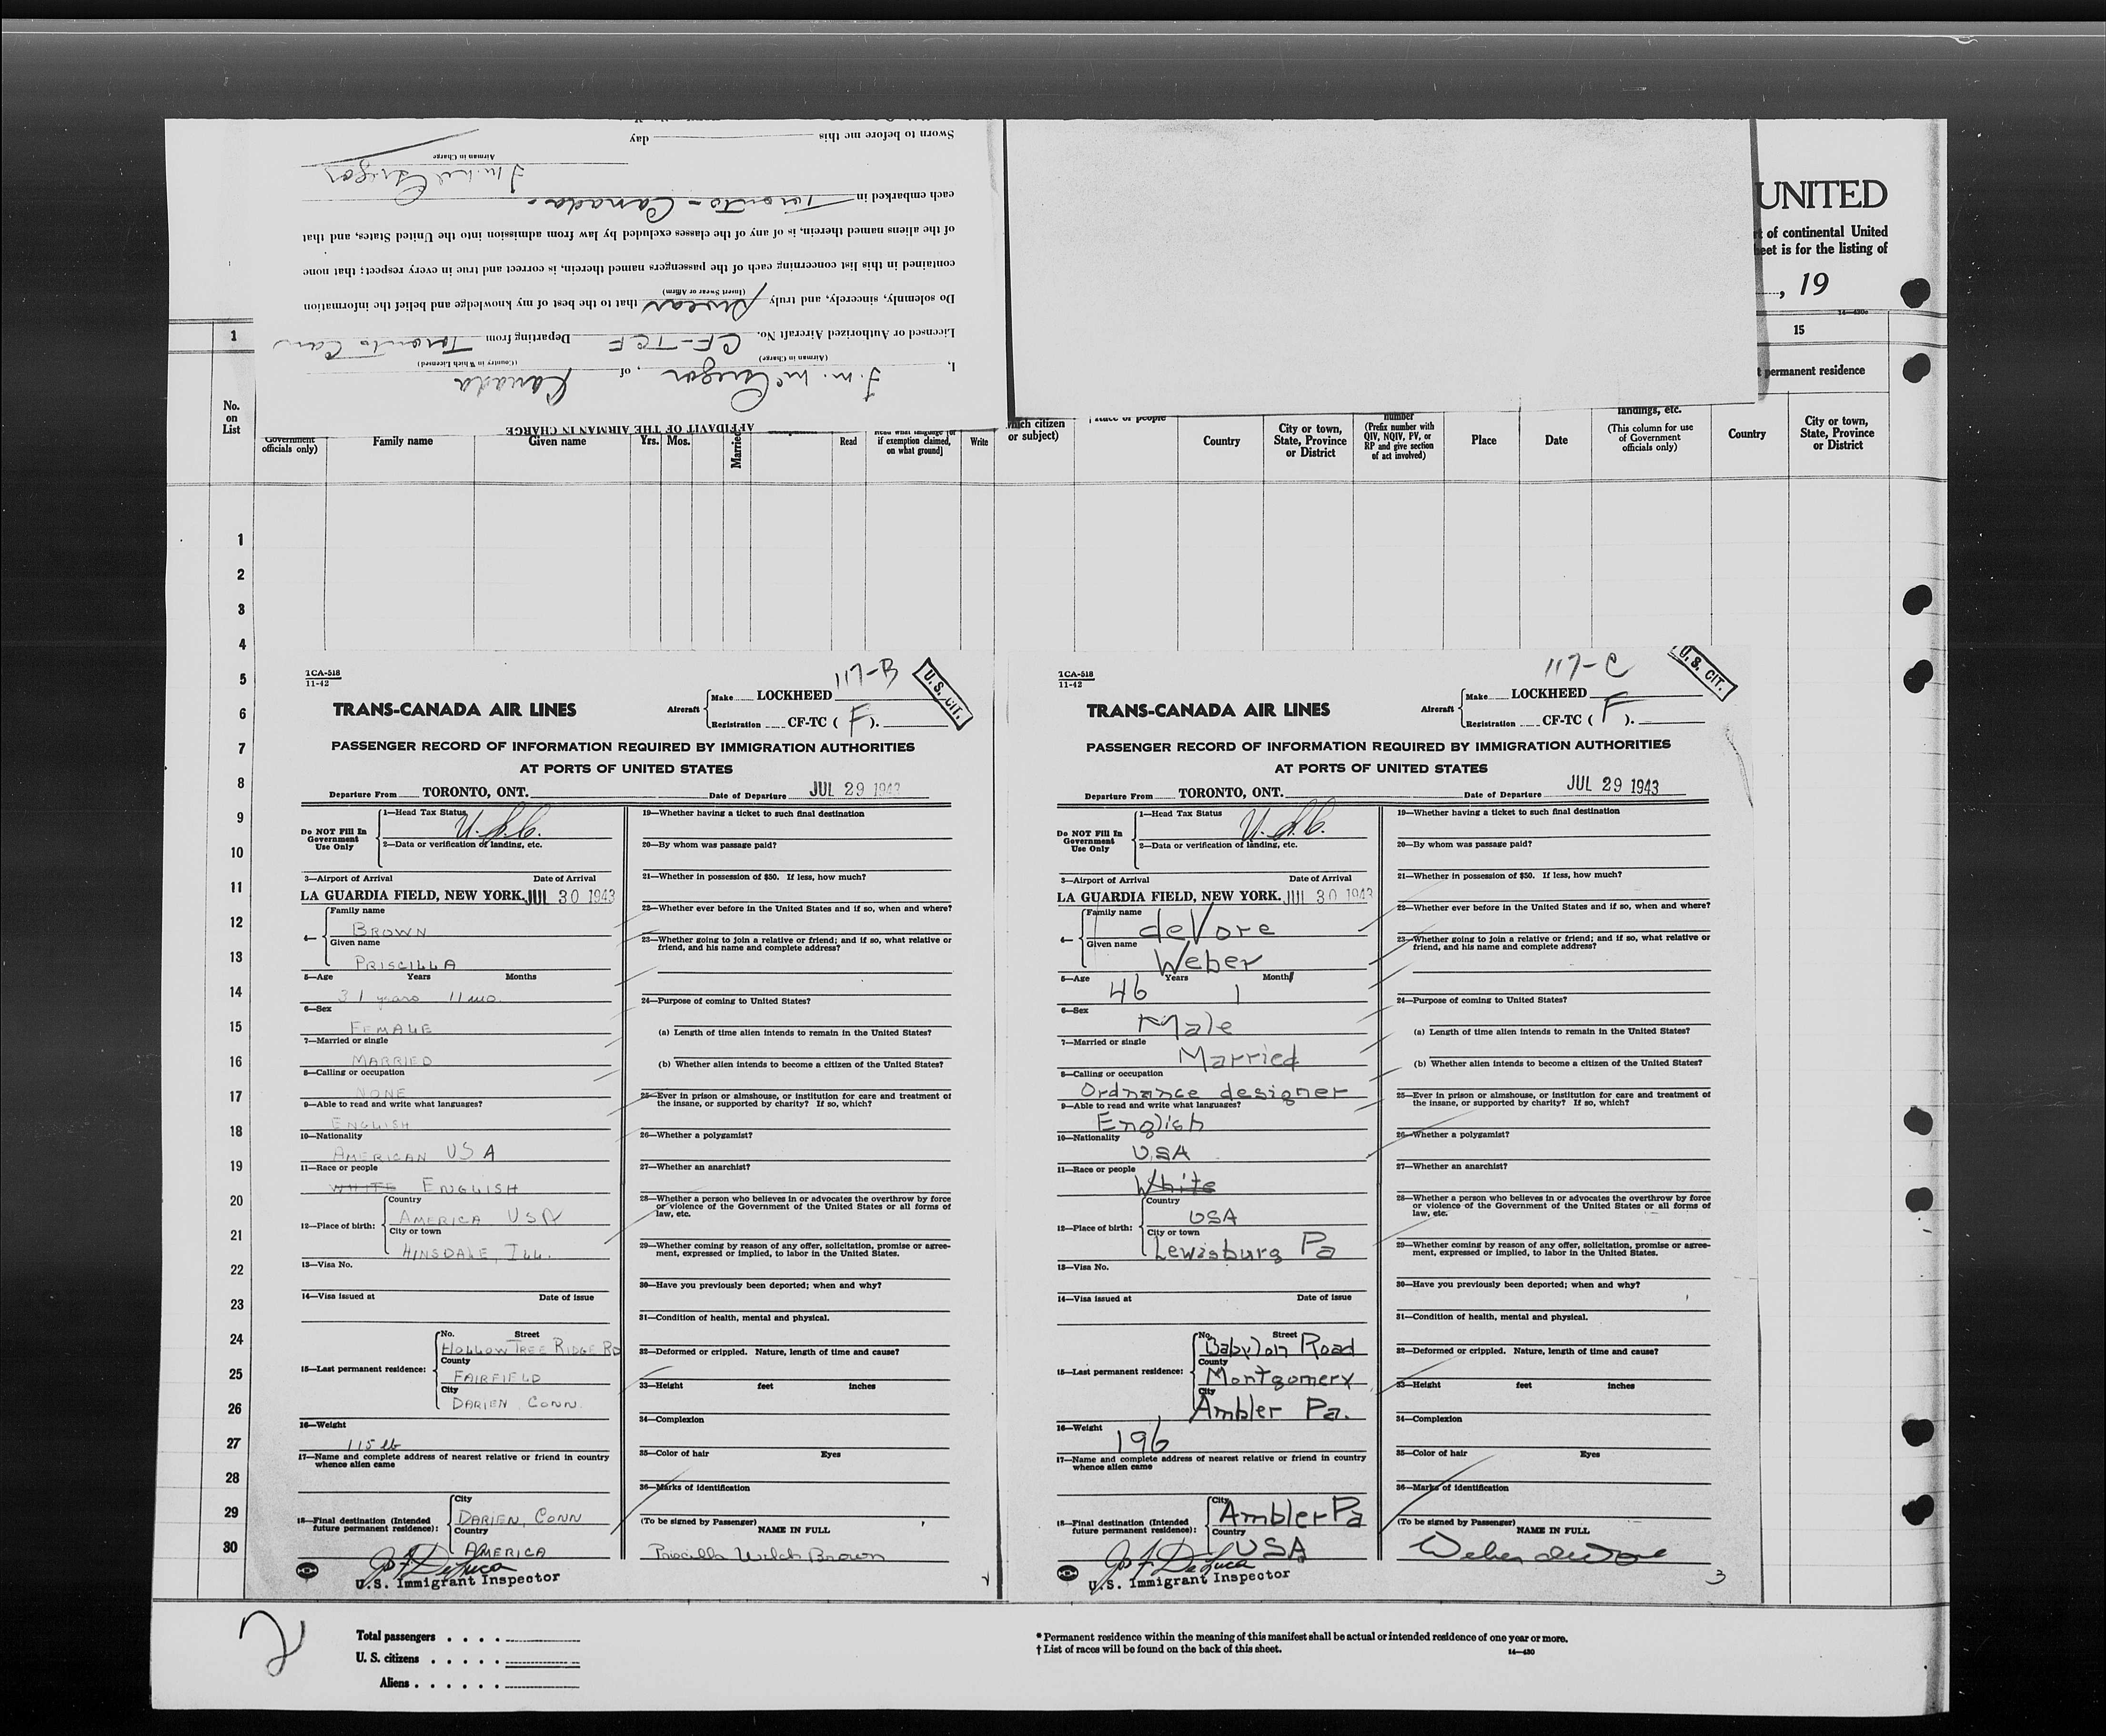 Sworn to before me this day
Airman in Charge
J M McGregor
each embarked in Toronto - Canada.
of the aliens named therein, is of any of the classes excluded by law from admission into the United States, and that
contained in this list concerning each of the passengers named therein, is correct and true in every respect; that none
(Insert Swear or Affirm)
Do solemnly, sincerely, and truly swear that to the best of my knowledge and belief the information
Licensed or Authorized Aircraft No. CF-TCF Departing from Toronto Can
(Airman in Charge) (Country in Which Licensed)
I, J. M. McGregor, of Canada
AFFIDAVIT OF THE AIRMAN IN CHARGE
UNITED
of continental United
eet is for the listing of
, 19
14—430c
1 15
permanent residence
No. on List
Government officials only)
Family name
Given name
Yrs.
Mos.
Married
Read
if exemption claimed, on what ground]
Write
which citizen or subject)
Race or people
Country
City or town, State, Province or District
number
(Prefix number with QIV, NQIV, PV, or RP and give section of act involved)
Place
Date
landings, etc.
(This column for use of Government officials only)
Country
City or town, State, Province or District
1
2
3
4
5
6
7
8
9
10
11
12
13
14
15
16
17
18
19
20
21
22
23
24
25
26
27
28
29
30
TCA-518
11-42
117-B
U.S. CIT.
TRANS-CANADA AIR LINES
Aircraft
Make LOCKHEED
Registration CF-TC ( F ).
PASSENGER RECORD OF INFORMATION REQUIRED BY IMMIGRATION AUTHORITIES
AT PORTS OF UNITED STATES
Departure From TORONTO, ONT. Date of Departure JUL 29 1943
Do NOT Fill In Government Use Only
1—Head Tax Status U.S.C.
2—Data or verification of landing, etc.
3—Airport of Arrival Date of Arrival
LA GUARDIA FIELD, NEW YORK. JUL 30 1943
4—
Family name
BROWN
Given name
PRISCILLA
5—Age Years Months
31 years 11 mo.
6—Sex
FEMALE
7—Married or single
MARRIED
8—Calling or occupation
NONE
9—Able to read and write what languages?
ENGLISH
10—Nationality
AMERICAN USA
11—Race or people
WHITE ENGLISH
12—Place of birth:
Country
AMERICA USA
City or town
HINSDALE, ILL.
13—Visa No.
14—Visa issued at Date of issue
15—Last permanent residence:
No. Street
HOLLOW TREE RIDGE RD
County
FAIRFIELD
City
DARIEN, CONN.
16—Weight
115 lb
17—Name and complete address of nearest relative or friend in country
whence alien came
18—Final destination (Intended future permanent residence):
City
DARIEN, CONN
Country
AMERICA
Jos F DeLuca
U.S. Immigrant Inspector
19—Whether having a ticket to such final destination
20—By whom was passage paid?
21—Whether in possession of $50. If less, how much?
22—Whether ever before in the United States and if so, when and where?
23—Whether going to join a relative or friend; and if so, what relative or
friend, and his name and complete address?
24—Purpose of coming to United States?
(a) Length of time alien intends to remain in the United States?
(b) Whether alien intends to become a citizen of the United States?
25—Ever in prison or almshouse, or institution for care and treatment of
the insane, or supported by charity? If so, which?
26—Whether a polygamist?
27—Whether an anarchist?
28—Whether a person who believes in or advocates the overthrow by force
or violence of the Government of the United States or all forms of
law, etc.
29—Whether coming by reason of any offer, solicitation, promise or agree-
ment, expressed or implied, to labor in the United States.
30—Have you previously been deported; when and why?
31—Condition of health, mental and physical.
32—Deformed or crippled. Nature, length of time and cause?
33—Height feet inches
34—Complexion
35—Color of hair Eyes
36—Marks of identification
(To be signed by Passenger)
NAME IN FULL
Priscilla Welch Brown
TCA-518
11-42
117-C
U.S. CIT.
TRANS-CANADA AIR LINES
Aircraft
Make LOCKHEED
Registration CF-TC ( F ).
PASSENGER RECORD OF INFORMATION REQUIRED BY IMMIGRATION AUTHORITIES
AT PORTS OF UNITED STATES
Departure From TORONTO, ONT. Date of Departure JUL 29 1943
Do NOT Fill In Government Use Only
1—Head Tax Status U.S.C.
2—Data or verification of landing, etc.
3—Airport of Arrival Date of Arrival
LA GUARDIA FIELD, NEW YORK. JUL 30 1943
4—
Family name
deVore
Given name
Weber
5—Age Years Months
46 1
6—Sex
Male
7—Married or single
Married
8—Calling or occupation
Ordnance designer
9—Able to read and write what languages?
English
10—Nationality
USA
11—Race or people
White
12—Place of birth:
Country
USA
City or town
Lewisburg Pa
13—Visa No.
14—Visa issued at Date of issue
15—Last permanent residence:
No. Street
Babylon Road
County
Montgomery
City
Ambler Pa.
16—Weight
196
17—Name and complete address of nearest relative or friend in country
whence alien came
18—Final destination (Intended future permanent residence):
City
Ambler Pa
Country
USA
Jos F DeLuca
U.S. Immigrant Inspector
19—Whether having a ticket to such final destination
20—By whom was passage paid?
21—Whether in possession of $50. If less, how much?
22—Whether ever before in the United States and if so, when and where?
23—Whether going to join a relative or friend; and if so, what relative or
friend, and his name and complete address?
24—Purpose of coming to United States?
(a) Length of time alien intends to remain in the United States?
(b) Whether alien intends to become a citizen of the United States?
25—Ever in prison or almshouse, or institution for care and treatment of
the insane, or supported by charity? If so, which?
26—Whether a polygamist?
27—Whether an anarchist?
28—Whether a person who believes in or advocates the overthrow by force
or violence of the Government of the United States or all forms of
law, etc.
29—Whether coming by reason of any offer, solicitation, promise or agree-
ment, expressed or implied, to labor in the United States.
30—Have you previously been deported; when and why?
31—Condition of health, mental and physical.
32—Deformed or crippled. Nature, length of time and cause?
33—Height feet inches
34—Complexion
35—Color of hair Eyes
36—Marks of identification
(To be signed by Passenger)
NAME IN FULL
Weber deVore
3
2
Total passengers
U. S. citizens
Aliens
* Permanent residence within the meaning of this manifest shall be actual or intended residence of one year or more.
† List of races will be found on the back of this sheet.
14—430